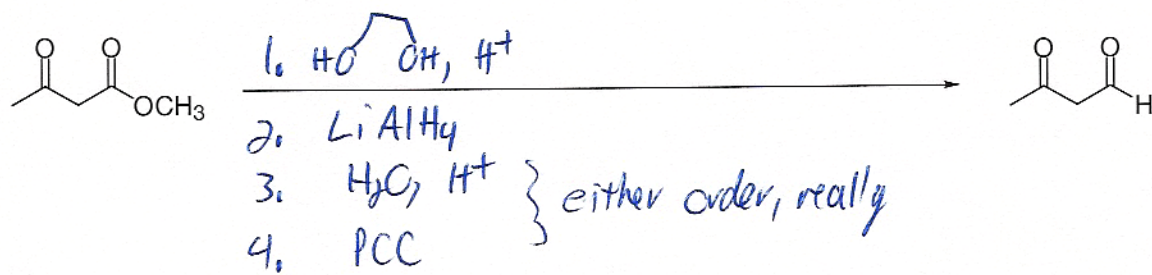 O O
OCH3
1. HO OH, H+
2. LiAlH4
3. H2O, H+ } either order, really
4. PCC
O O
H